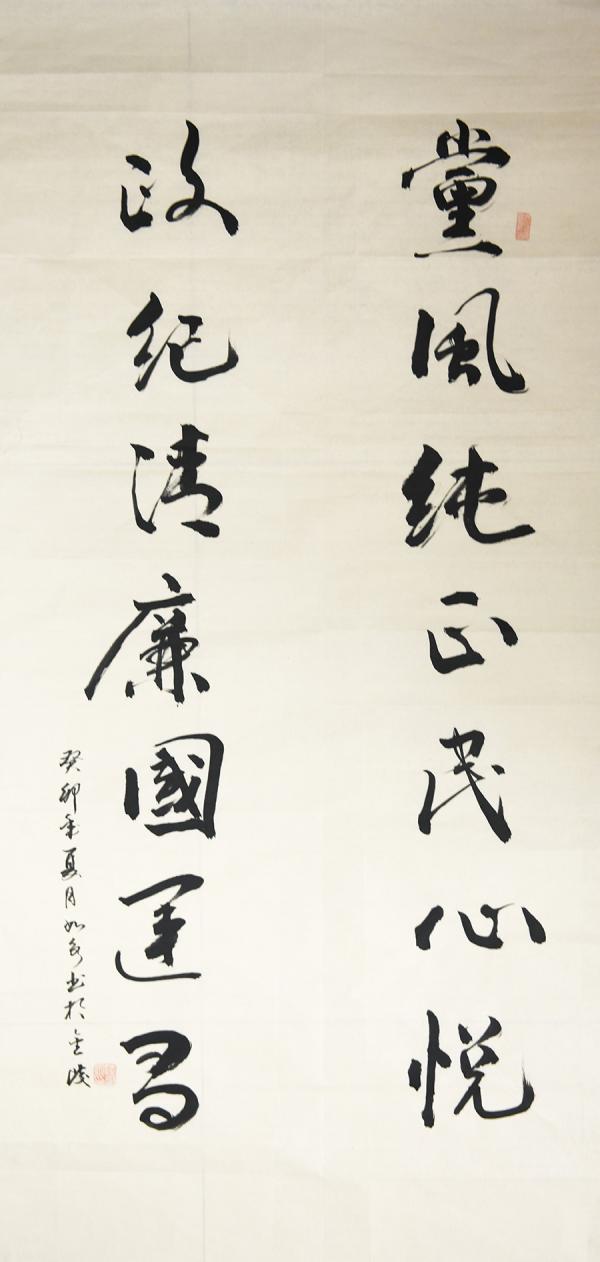 黨風純正民心悦
政紀清廉國運昌
癸卯年夏月如多书於金陵